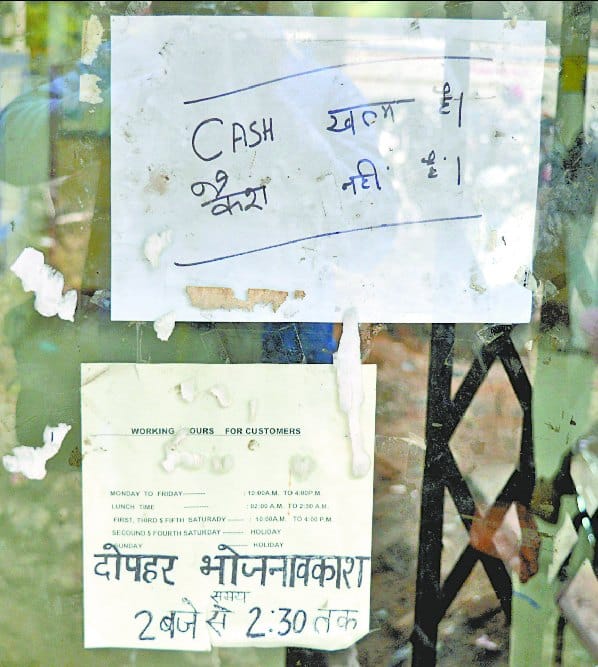 CASH खत्म है।
कैश नहीं है।
WORKING OURS FOR CUSTOMERS
MONDAY TO FRIDAY------- : 10:00A.M. TO 4:00P.M
LUNCH TIME ------- : 02:00 A.M. TO 2:30 A.M.
FIRST, THIRD $ FIFTH SATURADY----- : 10:00A.M. TO 4:00 P.M.
SECOUND $ FOURTH SATURDAY ------ HOLIDAY
SUNDAY HOLIDAY
दोपहर भोजनावकाश
समय
2 बजे से 2:30 तक